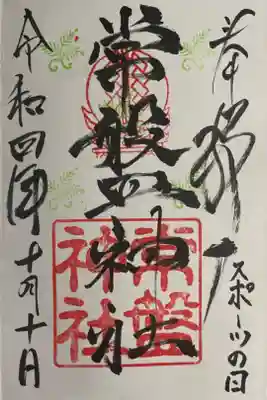 奉拝
スポーツの日
常盤神社
常磐神社
令和四年十月十日